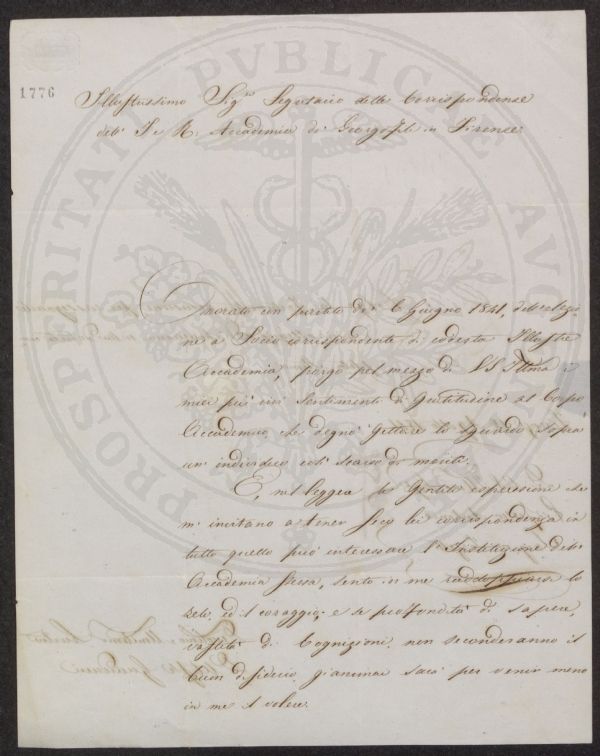 1776
PROSPERITATI PVBLICAE
Illustrissimo Sig.re Segretario delle Corrispondenze
dell' I. e R. Accademia dei Georgofili in Firenze
Onorato con partito de' 6 Giugno 1841. dell' elezio
ne a Socio corrispondente di codesta Illustre
Accademia, porgo pel mezzo di V. S. Illma i
miei più vivi Sentimenti di Gratitudine al Corpo
Accademico che degnò gettare lo sguardo sopra
un' individuo così scarso di meriti.
E, nel leggere le Gentili espressioni che
m' invitano a tener seco lei corrispondenza in
tutto quello può interessare l' Instituzione della
Accademia stessa, sento in me raddoppiarsi lo
zelo, ed il coraggio; e se profondità di sapere,
vastità di Cognizioni non seconderanno il
buon desiderio, giammai sarà per venir meno
in me il volere.